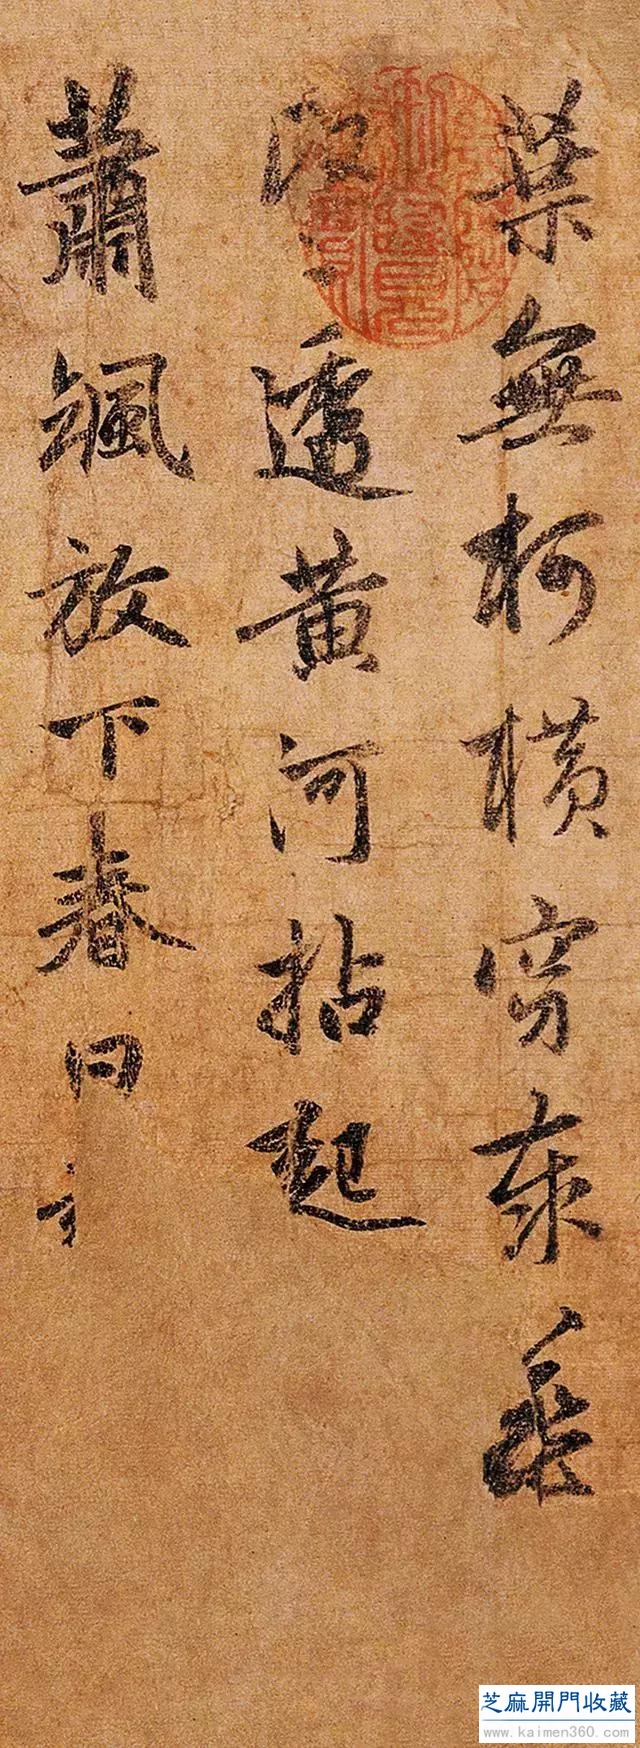 葉無柯橫穿
透黃河拈起
蕭颯放下春
芝麻開門收藏
www.kaimen360.com